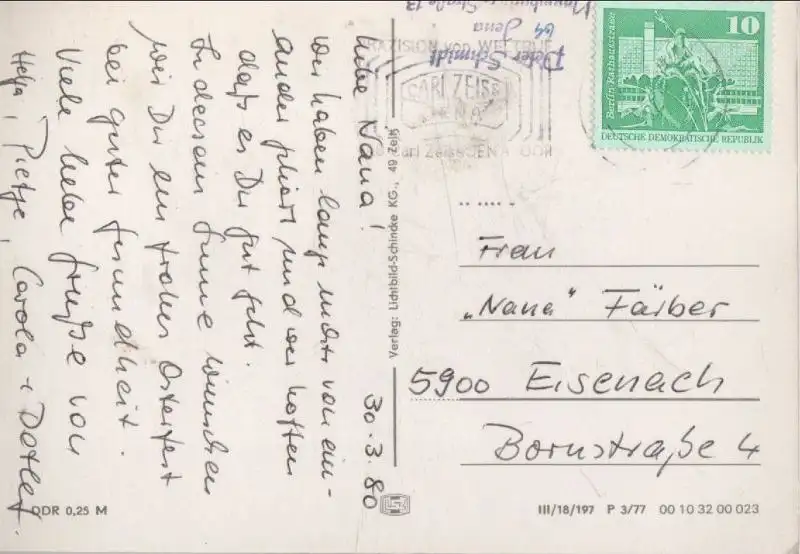 30.3.80
Liebe Nana!
Wir haben lange nichts von ein-
ander gehört und wir hoffen
daß es Dir gut geht.
In diesem Sinne wünschen
wir Dir ein frohes Osterfest
bei guter Gesundheit.
Viele liebe Grüße von
Helga, Pietje, Carola + Detlef.
DDR 0,25 M
Verlag: Lichtbild-Schincke KG., 49 Zeitz
Peter Schmidt
64 Jena
Straße 13
PRÄZISION von WELTRUF
CARL ZEISS
JENA
Carl Zeiss JENA DDR
10
Berlin, Rathausstraße
DEUTSCHE DEMOKRATISCHE REPUBLIK
Frau
„Nana“ Färber
5900 Eisenach
Bornstraße 4
III/18/197 P 3/77 00 10 32 00 023